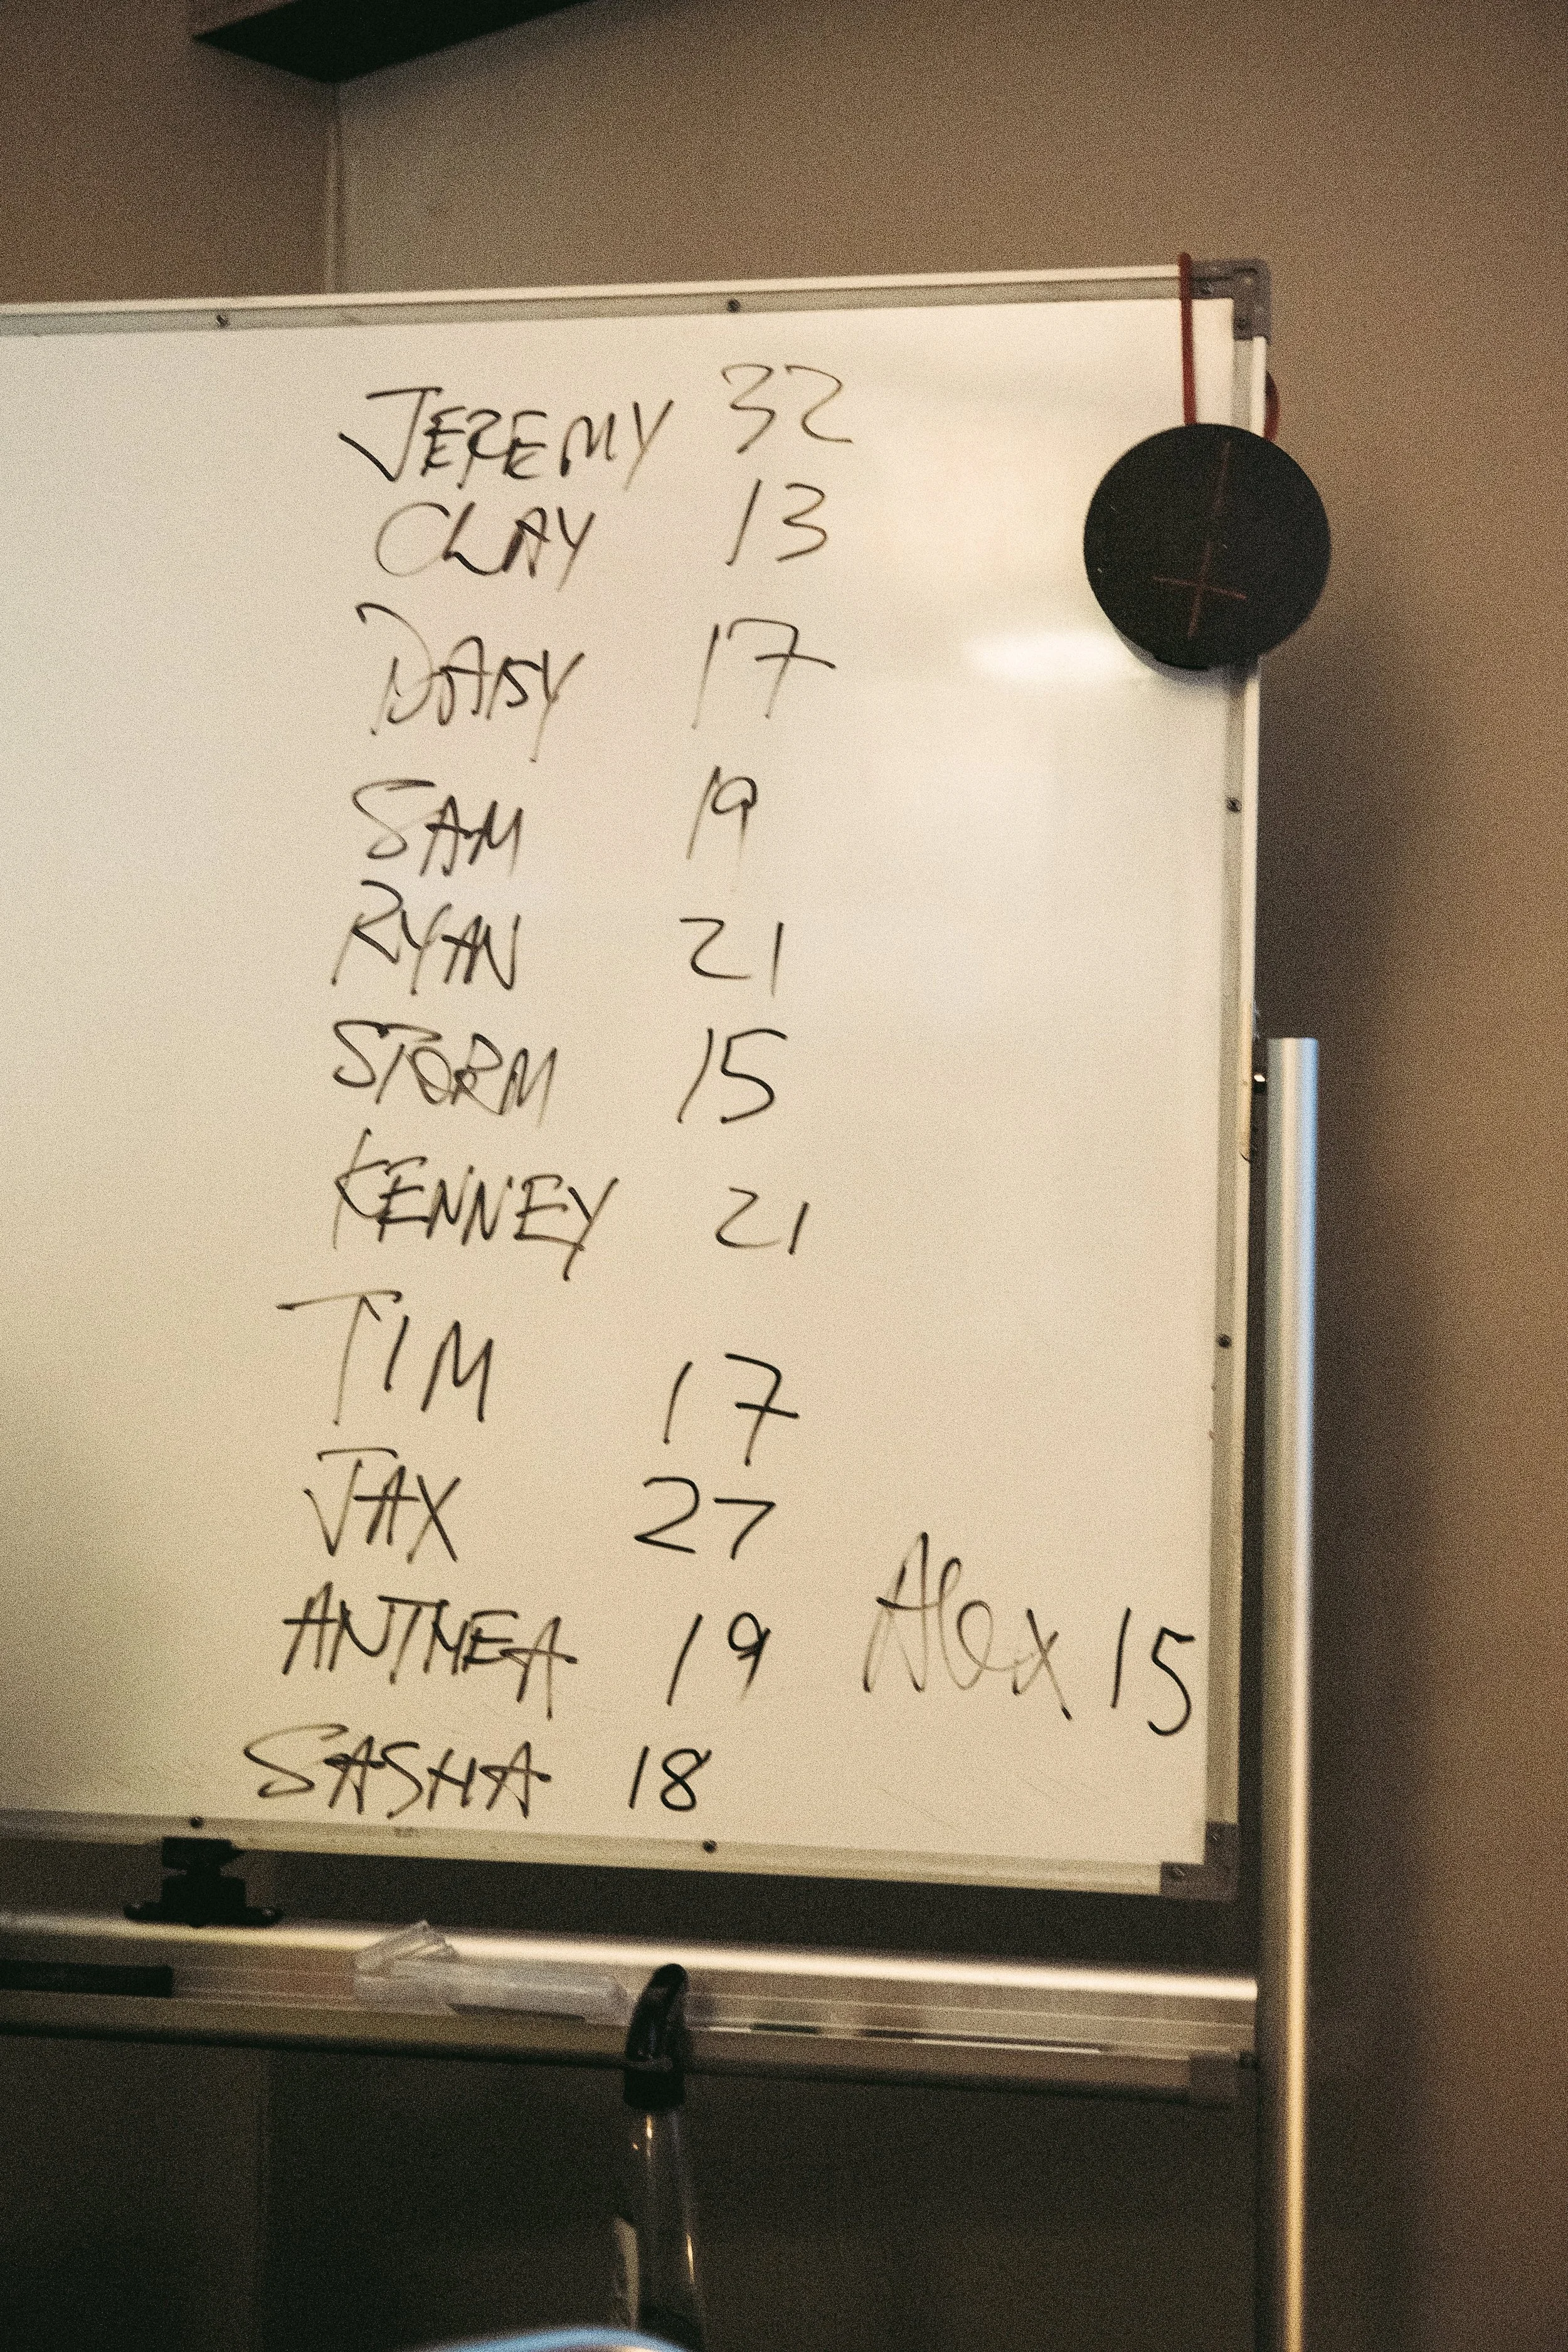 JEREMY 32
CLAY 13
DAISY 17
SAM 19
RYAN 21
STORM 15
KENNEY 21
TIM 17
JAX 27
ANTHEA 19 Alex 15
SASHA 18